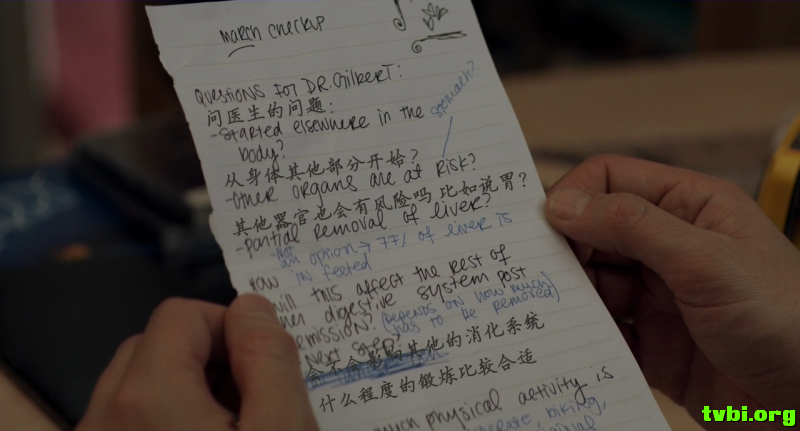 march checkup
QUESTIONS FOT DR. GILBERT:
问医生的问题:
-STARTED elsewhere in the stomach?
body?
从身体其他部分开始?
-other organs are at risk?
其他器官也会有风险吗 比如说胃?
-partial removal of liver?
not an option → 77% of liver is
infected
How will this affect the rest of
her digestive system post
emission? (depends on how much
has to be removed)
Next step?
会不会影响其他的消化系统
什么程度的锻炼比较合适
much physical activity is
biking,
tvbi.org